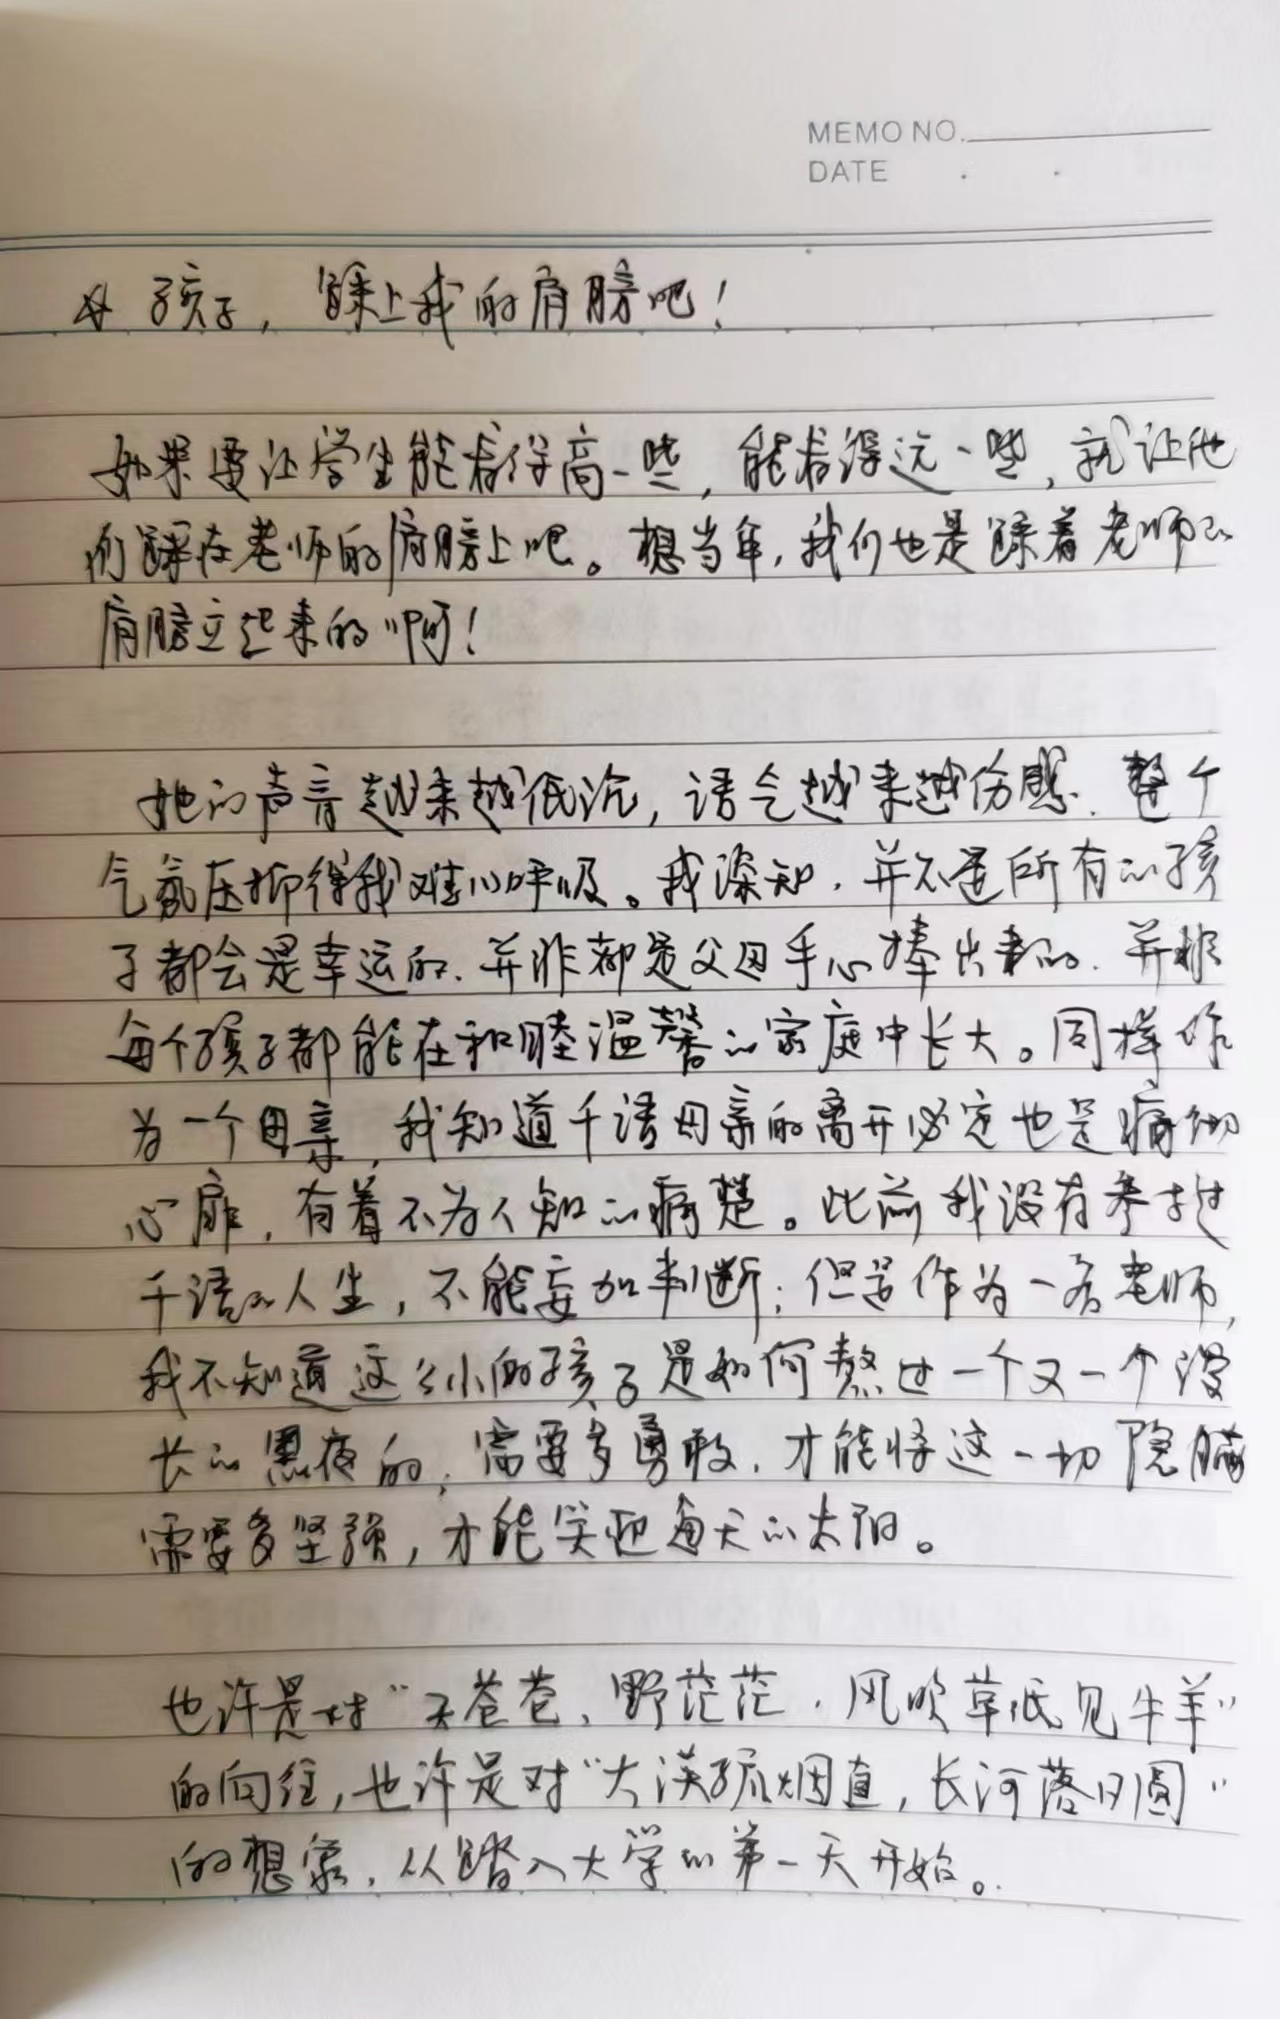 MEMO NO.
DATE . .
☆ 孩子，踩上我的肩膀吧！
如果要让学生能看得高一些，能看得远一些，就让他
们踩在老师的肩膀上吧。想当年，我们也是踩着老师的
肩膀立起来的啊！
她的声音越来越低沉，语气越来越伤感，整个
气氛压抑得我难以呼吸。我深知，并不是所有的孩
子都会是幸运的，并非都是父母手心捧出来的，并非
每个孩子都能在和睦温馨的家庭中长大。同样作
为一个母亲，我知道千语母亲的离开必定也是痛彻
心扉，有着不为人知的痛楚。此前我没有参与过
千语的人生，不能妄加判断；但是作为一名老师，
我不知道这么小的孩子是如何熬过一个又一个漫
长的黑夜的，需要多勇敢，才能将这一切隐瞒
需要多坚强，才能笑迎每天的太阳。
也许是对“天苍苍，野茫茫，风吹草低见牛羊”
的向往，也许是对“大漠孤烟直，长河落日圆”
的想象，从踏入大学的第一天开始。